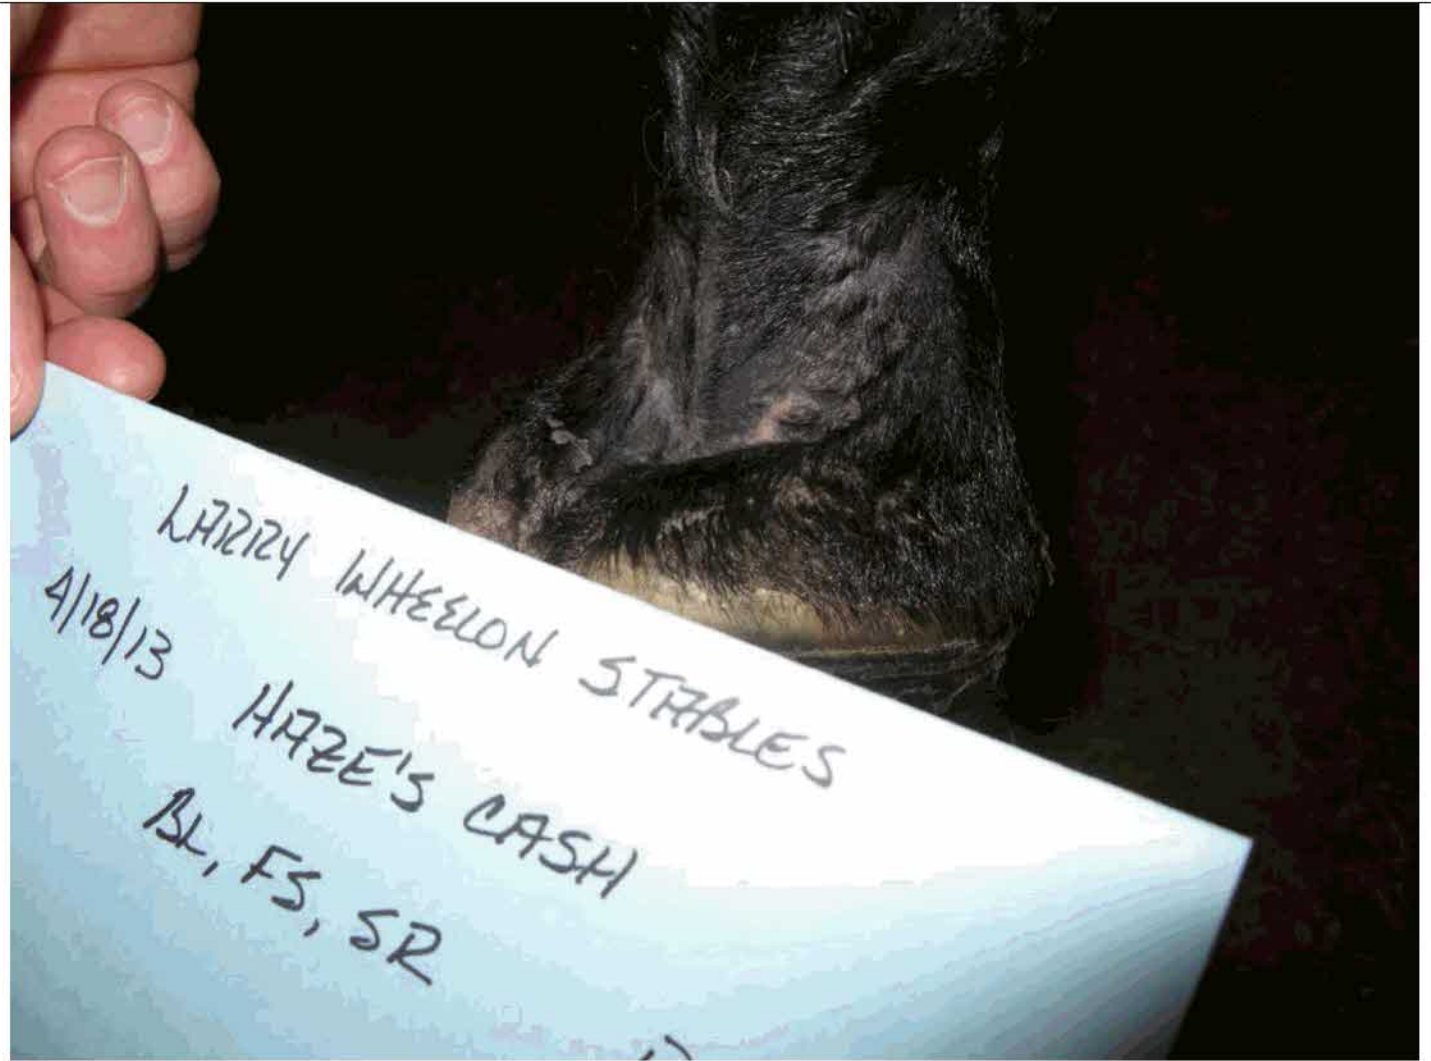 LARRY WHEELON STABLES
4/18/13 HAZE'S CASH
BL, FS, SR